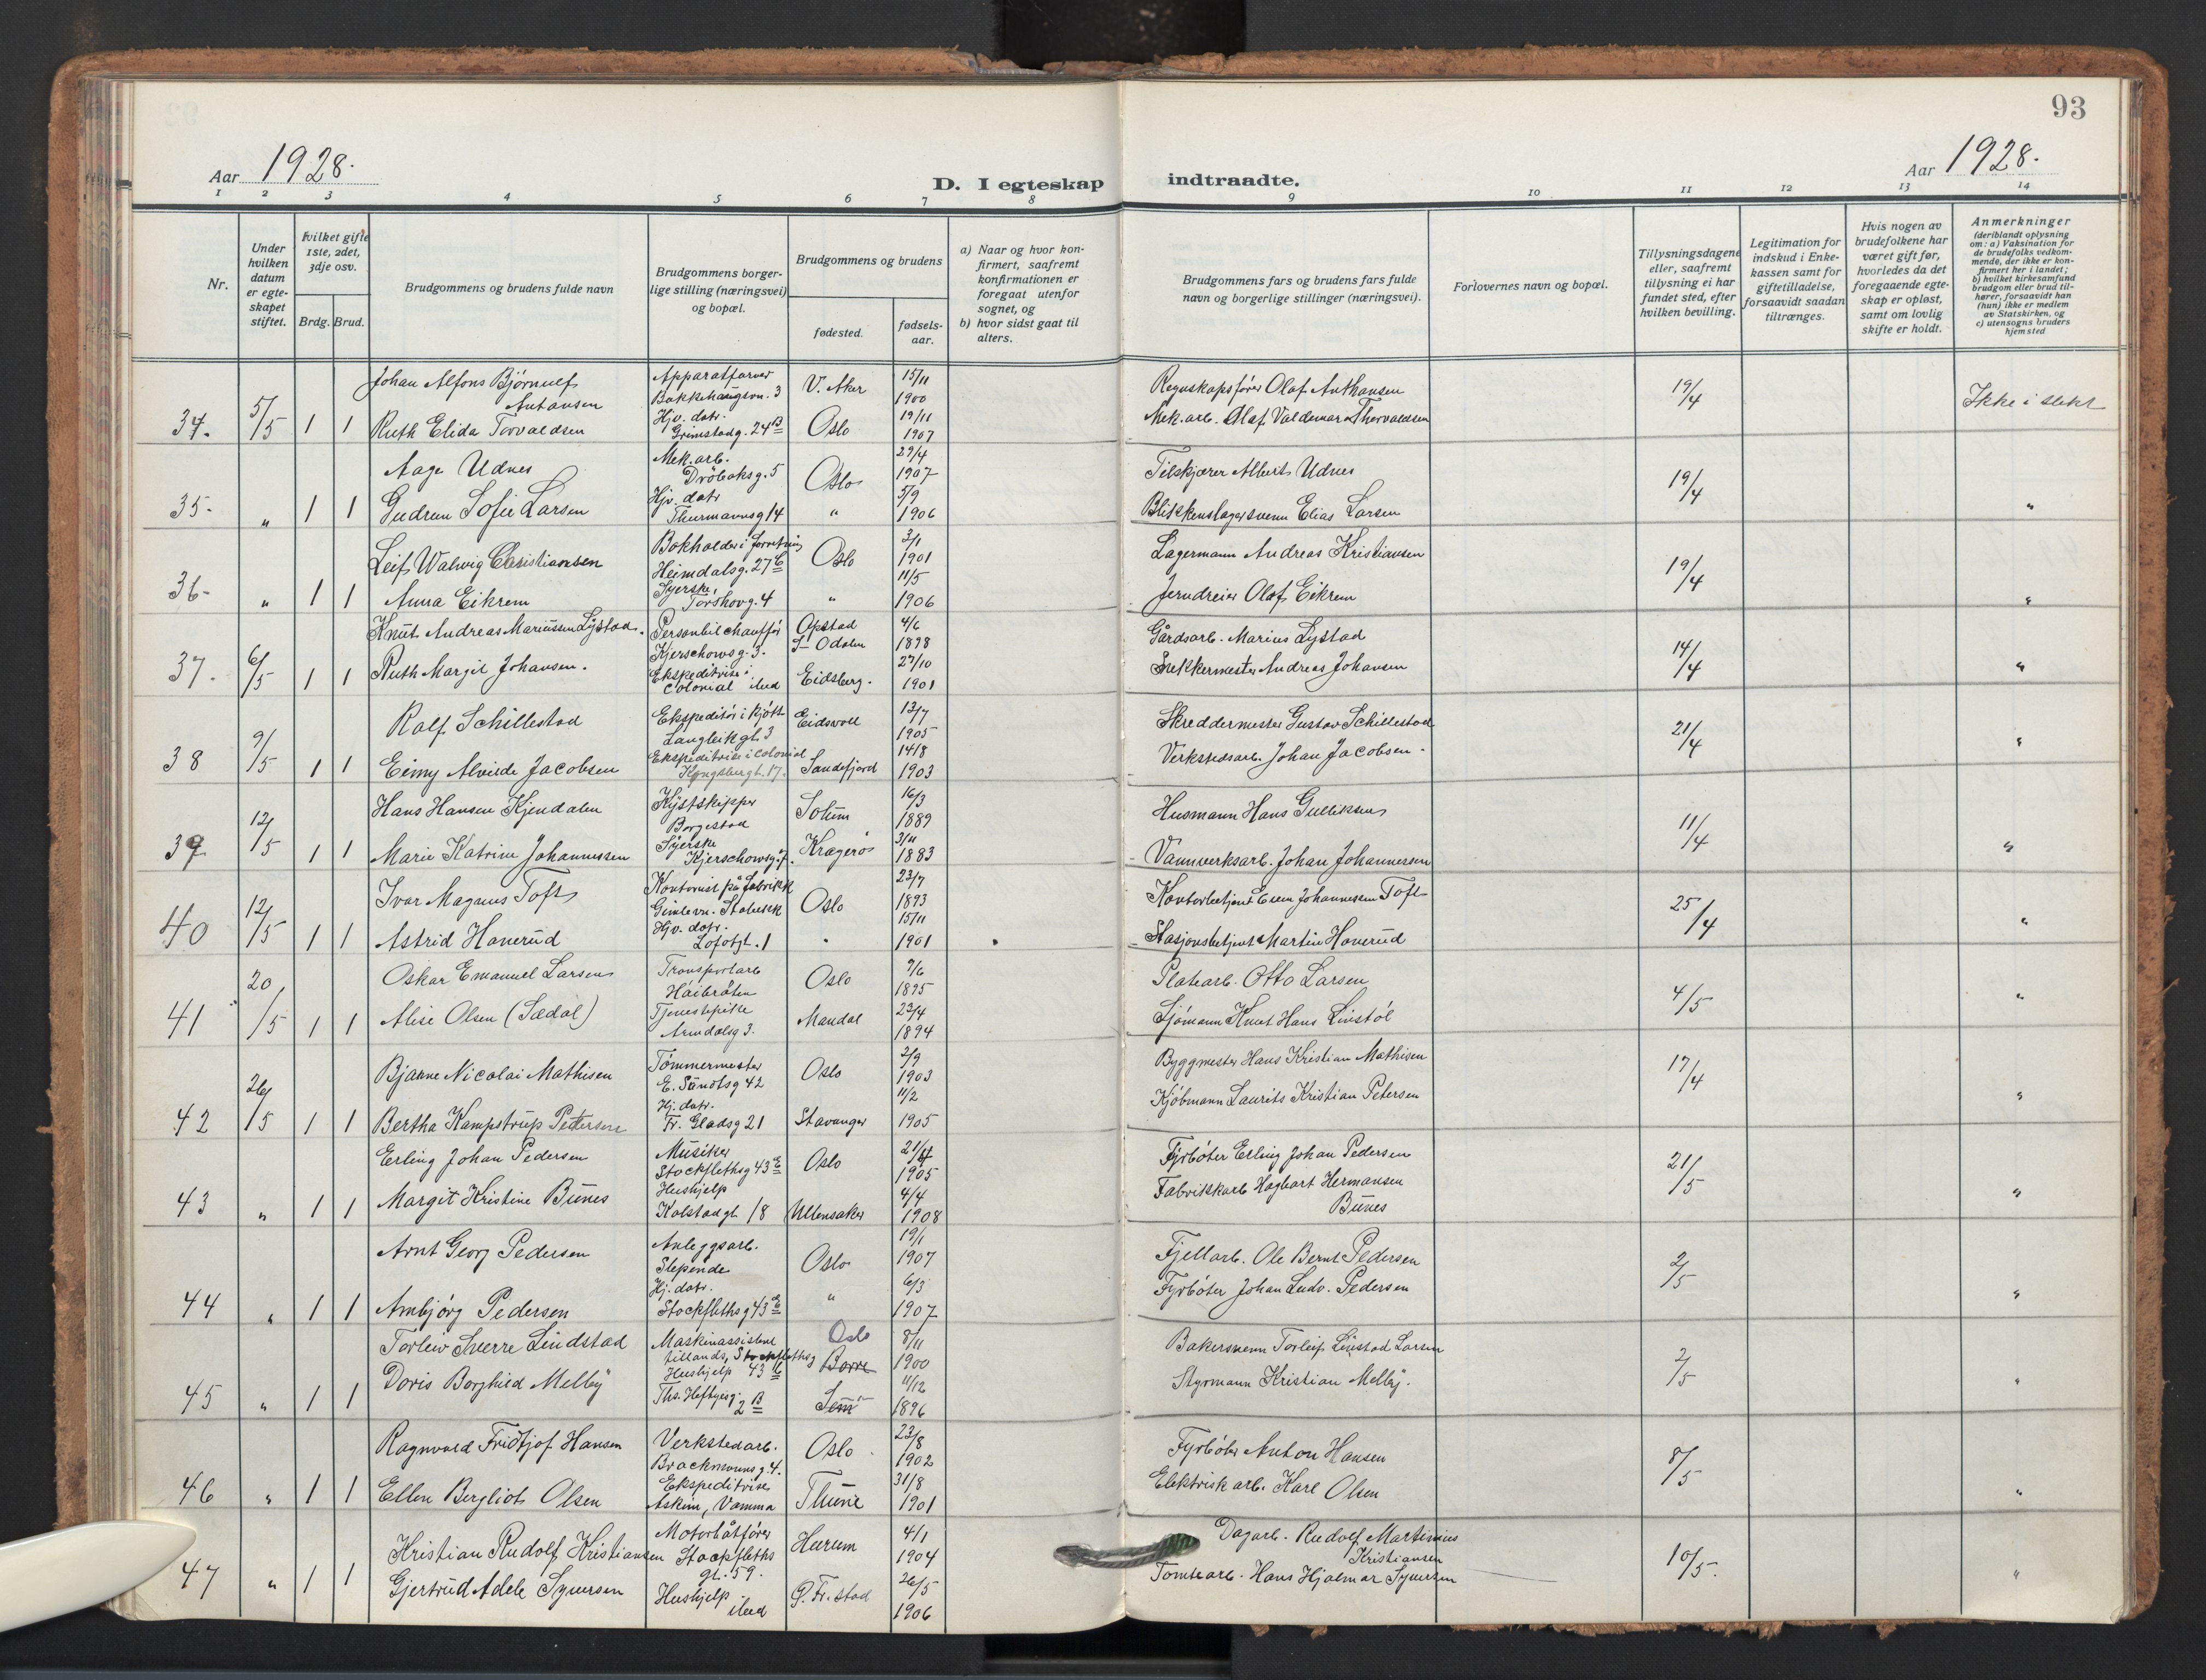 93
Aar 1928.
D. I egteskap indtraadte.
Aar 1928.
1 2 3 4 5 6 7 8 9 10 11 12 13 14
Nr.
Under hvilken datum er egteskapet stiftet.
Hvilket gifte 1ste, 2det, 3dje osv.
Brdg. Brud.
Brudgommens og brudens fulde navn
Brudgommens borgerlige stilling (næringsvei) og bopæl.
Brudgommens og brudens
fødested.
fødselsaar.
a) Naar og hvor konfirmert, saafremt konfirmationen er foregaat utenfor sognet, og
b) hvor sidst gaat til alters.
Brudgommens fars og brudens fars fulde navn og borgerlige stillinger (næringsvei).
Forlovernes navn og bopæl.
Tillysningsdagene eller, saafremt tillysning ei har fundet sted, efter hvilken bevilling.
Legitimation for indskud i Enkekassen samt for giftetilladelse, forsaavidt saadan tiltrænges.
Hvis nogen av brudefolkene har været gift før, hvorledes da det foregaaende egteskap er opløst, samt om lovlig skifte er holdt.
Anmerkninger
(deriblandt oplysning om: a) Vaksination for de brudefolks vedkommende, der ikke er konfirmert her i landet;
b) hvilket kirkesamfund brudgom eller brud tilhører, forsaavidt han (hun) ikke er medlem av Statskirken, og
c) utensogns bruders hjemsted
Johan Alfons Bjørnulf Antonsen Apparatfører Bakkehaugvn. 3 V. Aker 15/11 1900 Regnskapsfører Olaf Anthonsen
34. 5/5 1 1 Ruth Elida Torvaldsen Hj.v. datr. Grimstadg. 24 B Oslo 19/11 1907 Mek. arb. Olaf Valdemar Thorvaldsen 19/4 Ikke i slekt
Aage Udnes Mek. arb. Drøbaksg. 5 Oslo 29/4 1907 Tilskjærer Albert Udnes
35. " 1 1 Gudrun Sofie Larsen Hjv. datr Thurmannsg 14 " 5/9 1906 Blikkenslagersvenn Elias Larsen 19/4 "
Leif Walwig Christiansen Bokholder i forretning Heimdalsg. 27 C Oslo 3/1 1901 Lagermann Andreas Kristiansen
36- " 1 1 Anna Eikrem Syerske, Torshovg. 4 " 11/5 1906 Jerndreier Olaf Eikrem 19/4 "
Knut Andreas Mariussen Lystad. Personbilchauffør Kjerschowsg. 3. Opstad S- Odalen 4/6 1898 Gårdsarb. Marius Lystad
37. 6/5 1 1 Ruth Margit Johansen. Ekspeditrise i Colonial ibid Eidsberg. 27/10 1901 Snekkermester Andreas Johansen 14/4 "
Ralf Schillestad Ekspeditør i kjøtt Langleikgt. 3 Eidsvoll 13/7 1905 Skreddermester Gustav Schillestad
38 9/5 1 1 Eimy Alvilde Jacobsen Ekspeditrise i Colonial Kongsberggt. 17. Sandefjord 14/8 1903 Verkstedsarb. Johan Jacobsen. 21/4 "
Hans Hansen Kjendalen Kystskipper Borgestad Solum 16/3 1889 Husmann Hans Gulliksen
39 12/5 1 1 Marie Katrine Johannessen Syerske Kjerschowsg. 7. Kragerø 3/11 1883 Vannverksarb. Johan Johannessen 11/4 "
Ivar Magnus Toft Kontorist på fabrikk Gimlevn. Stabekk Oslo 23/7 1893 Kontorbetjent Even Johannessen Toft
40 12/5 1 1 Astrid Hanerud Hjv. datr. Lofotgt. 1 " 15/11 1901 Stasjonsbetjent Martin Hanerud 25/4 "
Oskar Emanuel Larsen Transportarb Høibråten Oslo 9/6 1895 Platearb. Otto Larsen
41 20/5 1 1 Alise Olsen (Sædal) Tjenestepike Arendalsg 3. Mandal 23/4 1894 Sjømann Knut Hans Livstøl 4/5 "
Bjarne Nicolai Mathisen Tømmermester E. Sundtsg 42 Oslo 2/9 1903 Byggmester Hans Kristian Mathisen
42 26/5 1 1 Bertha Kampstrup Petersen Hj. datr. Fr. Gladsg 21 Stavanger 11/2 1905 Kjøbmann Laurits Kristian Petersen 17/4 "
Erling Johan Pedersen Musiker Stockflethsg 43 E Oslo 21/4 1905 Fyrbøter Erling Johan Pedersen
43 " 1 1 Margit Kristine Bunes Hushjelp Kolstadgt. 18 Ullensaker 4/4 1908 Fabrikkarb Hagbart Hermansen Bunes 21/5 "
Arnt Georg Pedersen Anleggsarb. Slepende Oslo 19/1 1907 Fjellarb. Ole Bernt Pedersen
44 " 1 1 Ambjørg Pedersen Hj. datr. Stockflethsg 43 E " 6/3 1907 Fyrbøter Johan Ludv. Pedersen 2/5 "
Torleiv Sverre Lindstad Maskinassistent tillands, Stockflethsg 43 Oslo Borre 8/11 1900 Bakersvenn Torleif Linstad Larsen
45 " 1 1 Doris Borghild Melby Hushjelp Ths. Heftyesg. 2 B Sem 11/12 1896 Styrmann Kristian Melby. 2/5 "
Ragnvald Fridtjof Hansen Verkstedarb. Brochmannsg. 4. Oslo 23/8 1902 Fyrbøter Anton Hansen
46 " 1 1 Ellen Bergliot Olsen Ekspeditrise Askim, Vamma Thune 31/8 1901 Elektrisk arb. Karl Olsen 8/5 "
Kristian Rudolf Kristiansen Motorbåtfører Stockfleths gt. 59. Hurum 4/1 1904 Dagarb. Rudolf Martinius Kristiansen
47 " 1 1 Gjertrud Adele Syversen Hushjelp ibid G. Fr. stad 26/5 1906 Tomtearb. Hans Hjalmar Syversen 10/5. "